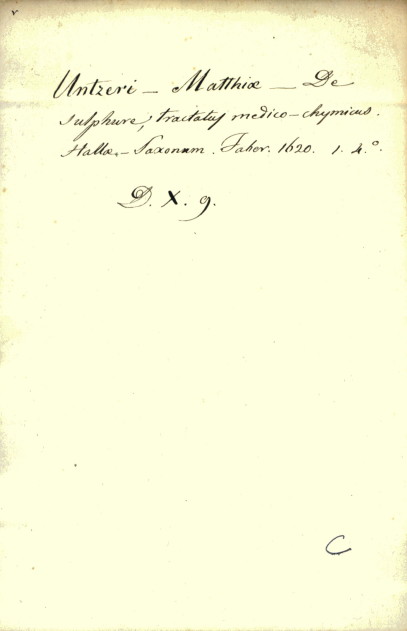 Untzeri - Matthiæ - De
sulphure, tractatus medico-chymicus.
Hallæ-Saxonum. Faber. 1620. 1. 4.°
D. X. 9.
C